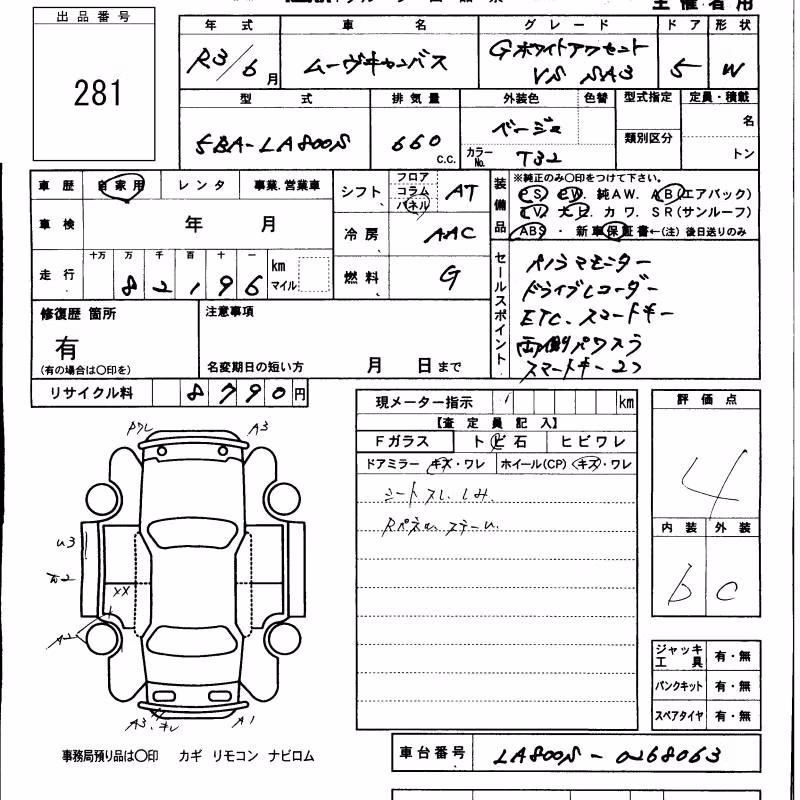 主催者用
出品番号
281
年式 車名 グレード ドア 形状
R3/6月 ムーヴキャンバス Gホワイトアクセント VS SA3 5 W
型式 排気量 外装色 色替 型式指定 定員・積載
5BA-LA800S 660 C.C. ベージュ 類別区分 名
カラーNo. T32 トン
車歴 自家用 レンタ 事業.営業車
シフト フロア コラム パネル AT
装備品
※純正のみ○印をつけて下さい。
PS PW. 純AW. AB(エアバック)
TV. ナビ. カワ. SR(サンルーフ)
ABS ・ 新車保証書←(注) 後日送りのみ
車検 年 月
冷房 AAC
走行 十万 万 千 百 十 一
82196 km マイル
燃料 G
セールスポイント
パノラマモニター
ドライブレコーダー
ETC. スマートキー
両側パワスラ
スマートキー2つ
修復歴 箇所
有
(有の場合は○印を)
注意事項
名変期日の短い方 月 日まで
リサイクル料 8790円
現メーター指示 km
【査定員記入】
Fガラス トビ石 ヒビワレ
ドアミラー キズ・ワレ ホイール(CP) キズ・ワレ
シートスレ. シミ
評価点
4
内装 外装
b C
A3
U3
XX
A2
A3. キレ
A1
ジャッキ工具 有・無
パンクキット 有・無
スペアタイヤ 有・無
事務局預り品は○印 カギ リモコン ナビロム
車台番号 LA800S-0268063